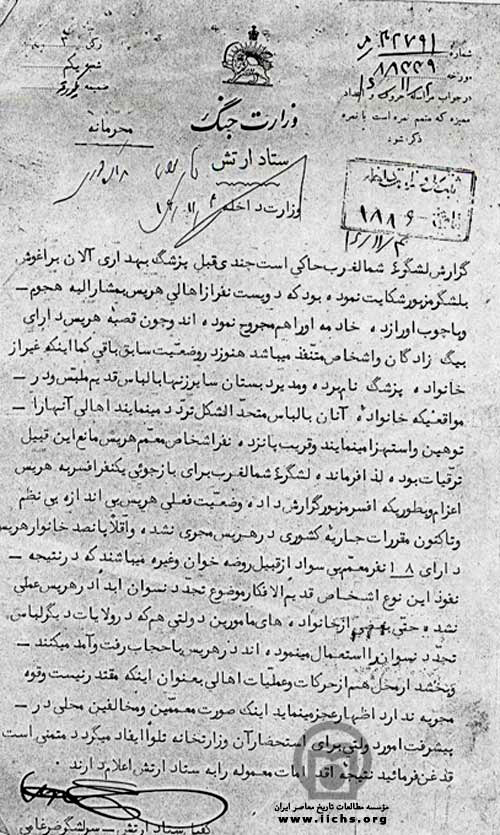 شماره ۴۲۷۹۱
مورخه ۸۸۳۳۹
۱۶/۱۱/۲
در جواب مراسله حروف و اعداد
ممیزه که متمم نمره است با نمره
ذکر شود
رکن ۲
شعبه یکم
ضمیمه
محرمانه
وزارت جنگ
ستاد ارتش
وزارت داخله
۱۸۸۶
۱۶/۱۱/۴
گزارش لشگر ۴ شمالغرب حاکی است چندی قبل پزشگ بهداری آلان براغوش
بلشگر مزبور شکایت نموده بود که دویست نفر از اهالی هریس بمشارالیه هجوم
و با چوب او را زده خادمه او را هم مجروح نموده اند و چون قصبه هریس دارای
بیگ زادگان و اشخاص متنفذ میباشد هنوز در وضعیت سابق باقی کما اینکه غیر از
خانواده پزشگ نامبرده و مدیر دبستان سایر زنها بالباس قدیم ملبس و در
مواقعیکه خانواده آنان بالباس متحد الشکل تردد مینمایند اهالی آنها را
توهین و استهزا مینمایند و قریب پانزده نفر اشخاص معمم هریس مانع این قبیل
ترقیات بوده لذا فرمانده لشگر ۴ شمالغرب برای بازجوئی یکنفر افسر به هریس
اعزام و بطوریکه افسر مزبور گزارش داده وضعیت فعلی هریس بی اندازه بی نظم
و تاکنون مقررات جاریه کشوری در هریس مجری نشده و اقلا پانصد خانوار هریس
دارای ۱۸ نفر معمم بی سواد از قبیل روضه خوان وغیره میباشند که در نتیجه
نفوذ این نوع اشخاص قدیم الافکار موضوع تجدد نسوان ابدا در هریس عملی
نشده حتی بعضی از خانواده های مامورین دولتی هم که در ولایات دیگر لباس
تجدد نسوان را استعمال مینموده اند در هریس با حجاب رفت و آمد میکنند
وبخشدار محل هم از حرکات و عملیات اهالی بعنوان اینکه مقتدر نیست وقوه
مجریه ندارد اظهار عجز مینماید اینک صورت معممین و مخالفین محلی در
پیشرفت امور دولتی برای استحضار آن وزارتخانه تلوا ایفاد میگردد متمنی است
قدغن فرمائید نتیجه اقدامات معموله را به ستاد ارتش اعلام دارند
کفیل ستاد ارتش - سرلشگر ضرغامی
مؤسسه مطالعات تاریخ معاصر ایران
www.iichs.org